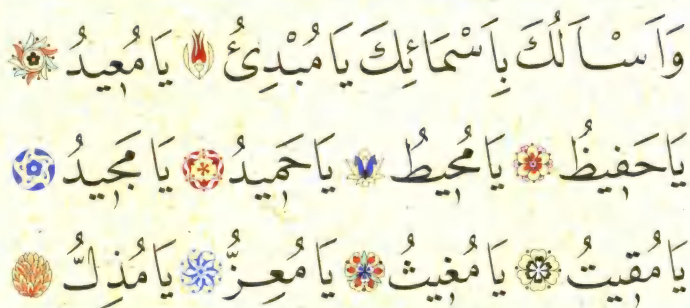 وَاَسْاَلُكَ بِاَسْمَائِكَ يَا مُبْدِئُ يَا مُعِيدُ
يَا حَفِيظُ يَا مُحِيطُ يَا حَمِيدُ يَا مَجِيدُ
يَا مُقِيتُ يَا مُغِيثُ يَا مُعِزُّ يَا مُذِلُّ